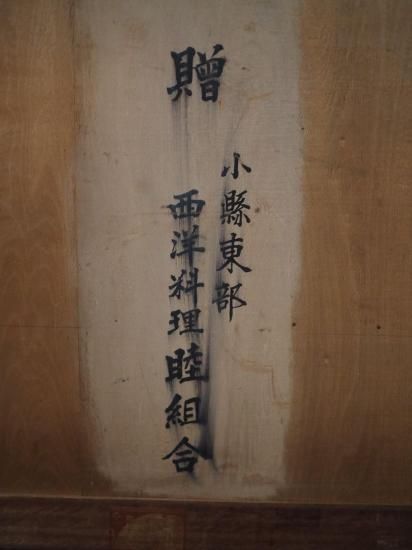 贈
小縣東部
西洋料理睦組合